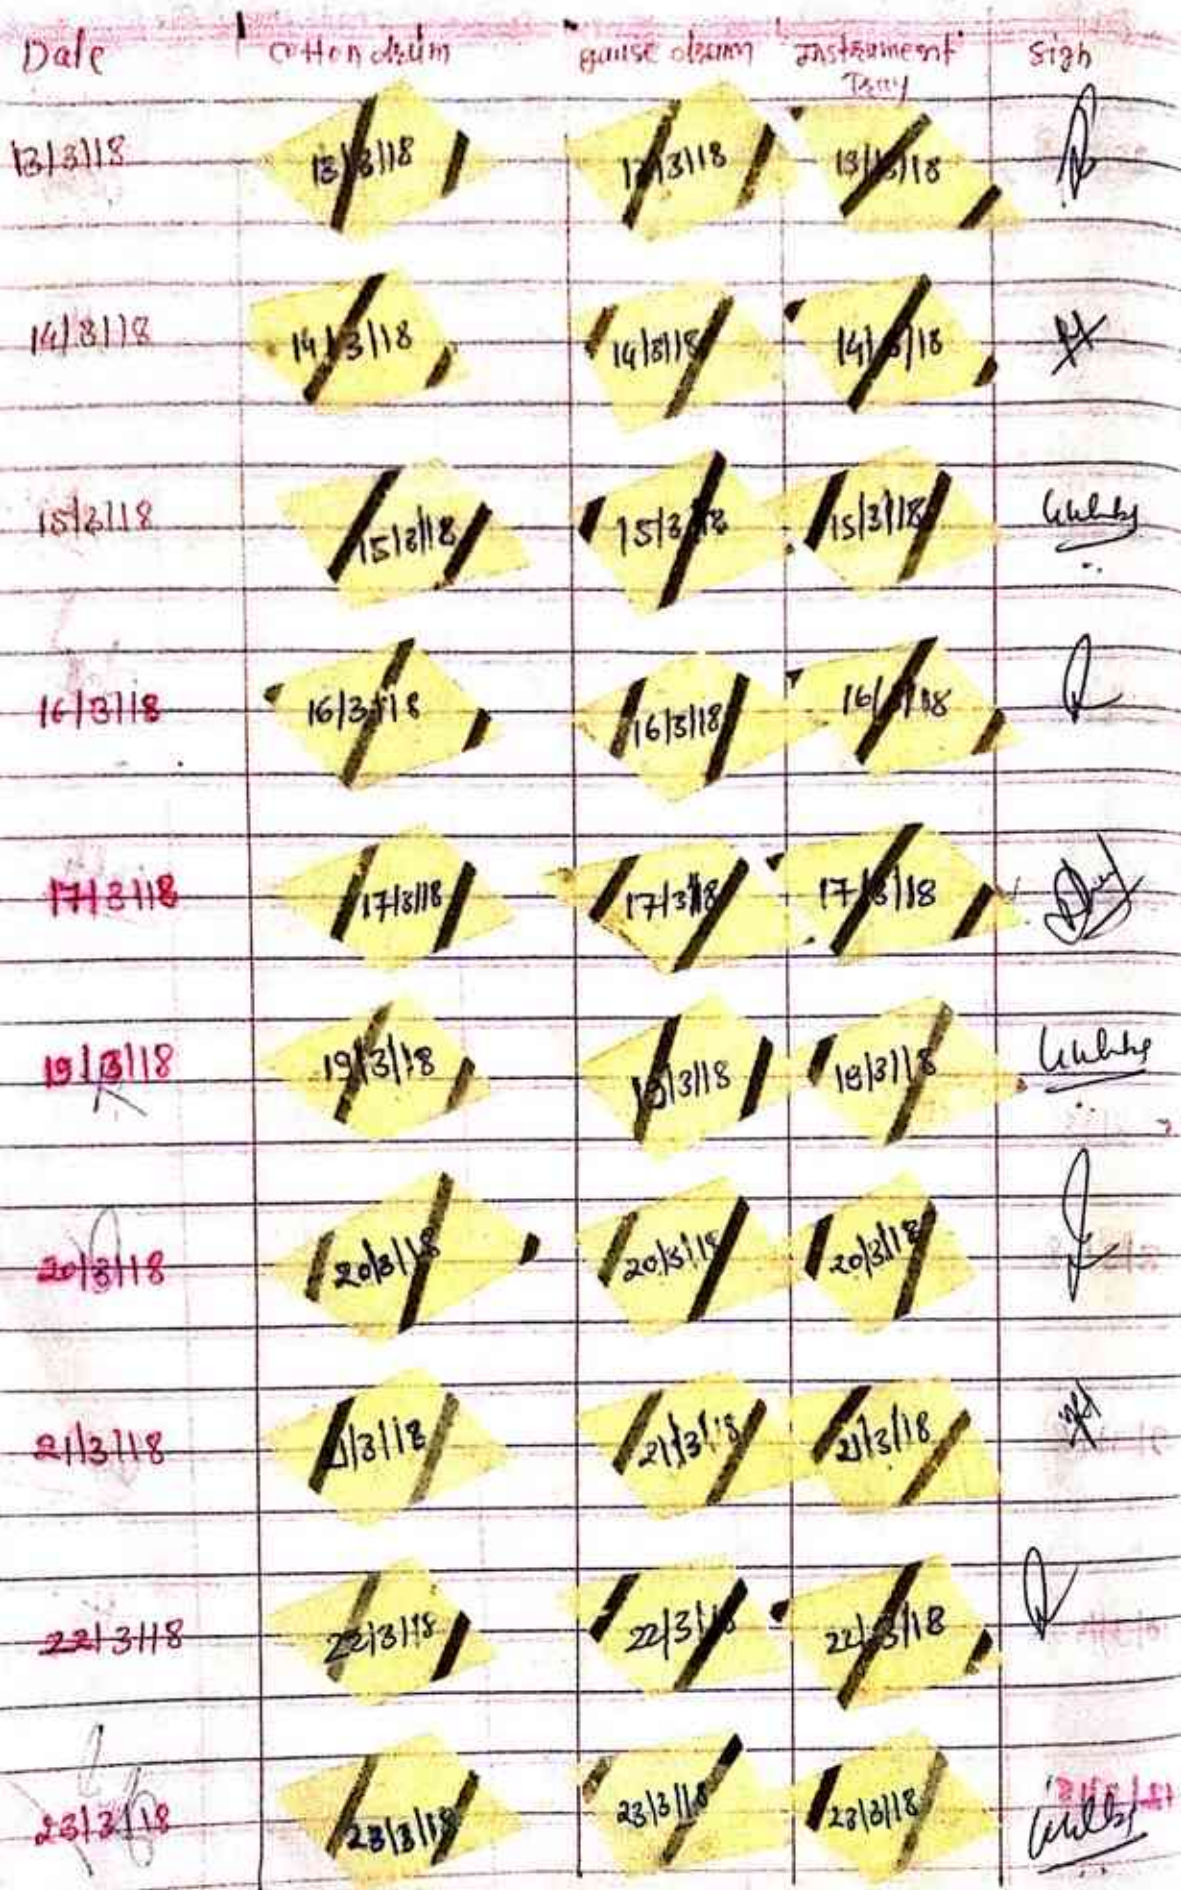 Date cotton drum gause drum Instrument Tray Sign
13/3/18 13/3/18 13/3/18 13/3/18
14/3/18 14/3/18 14/3/18 14/3/18
15/3/18 15/3/18 15/3/18 15/3/18
16/3/18 16/3/18 16/3/18 16/3/18
17/3/18 17/3/18 17/3/18 17/3/18
19/3/18 19/3/18 19/3/18 19/3/18
20/3/18 20/3/18 20/3/18 20/3/18
21/3/18 21/3/18 21/3/18 21/3/18
22/3/18 22/3/18 22/3/18 22/3/18
23/3/18 23/3/18 23/3/18 23/3/18